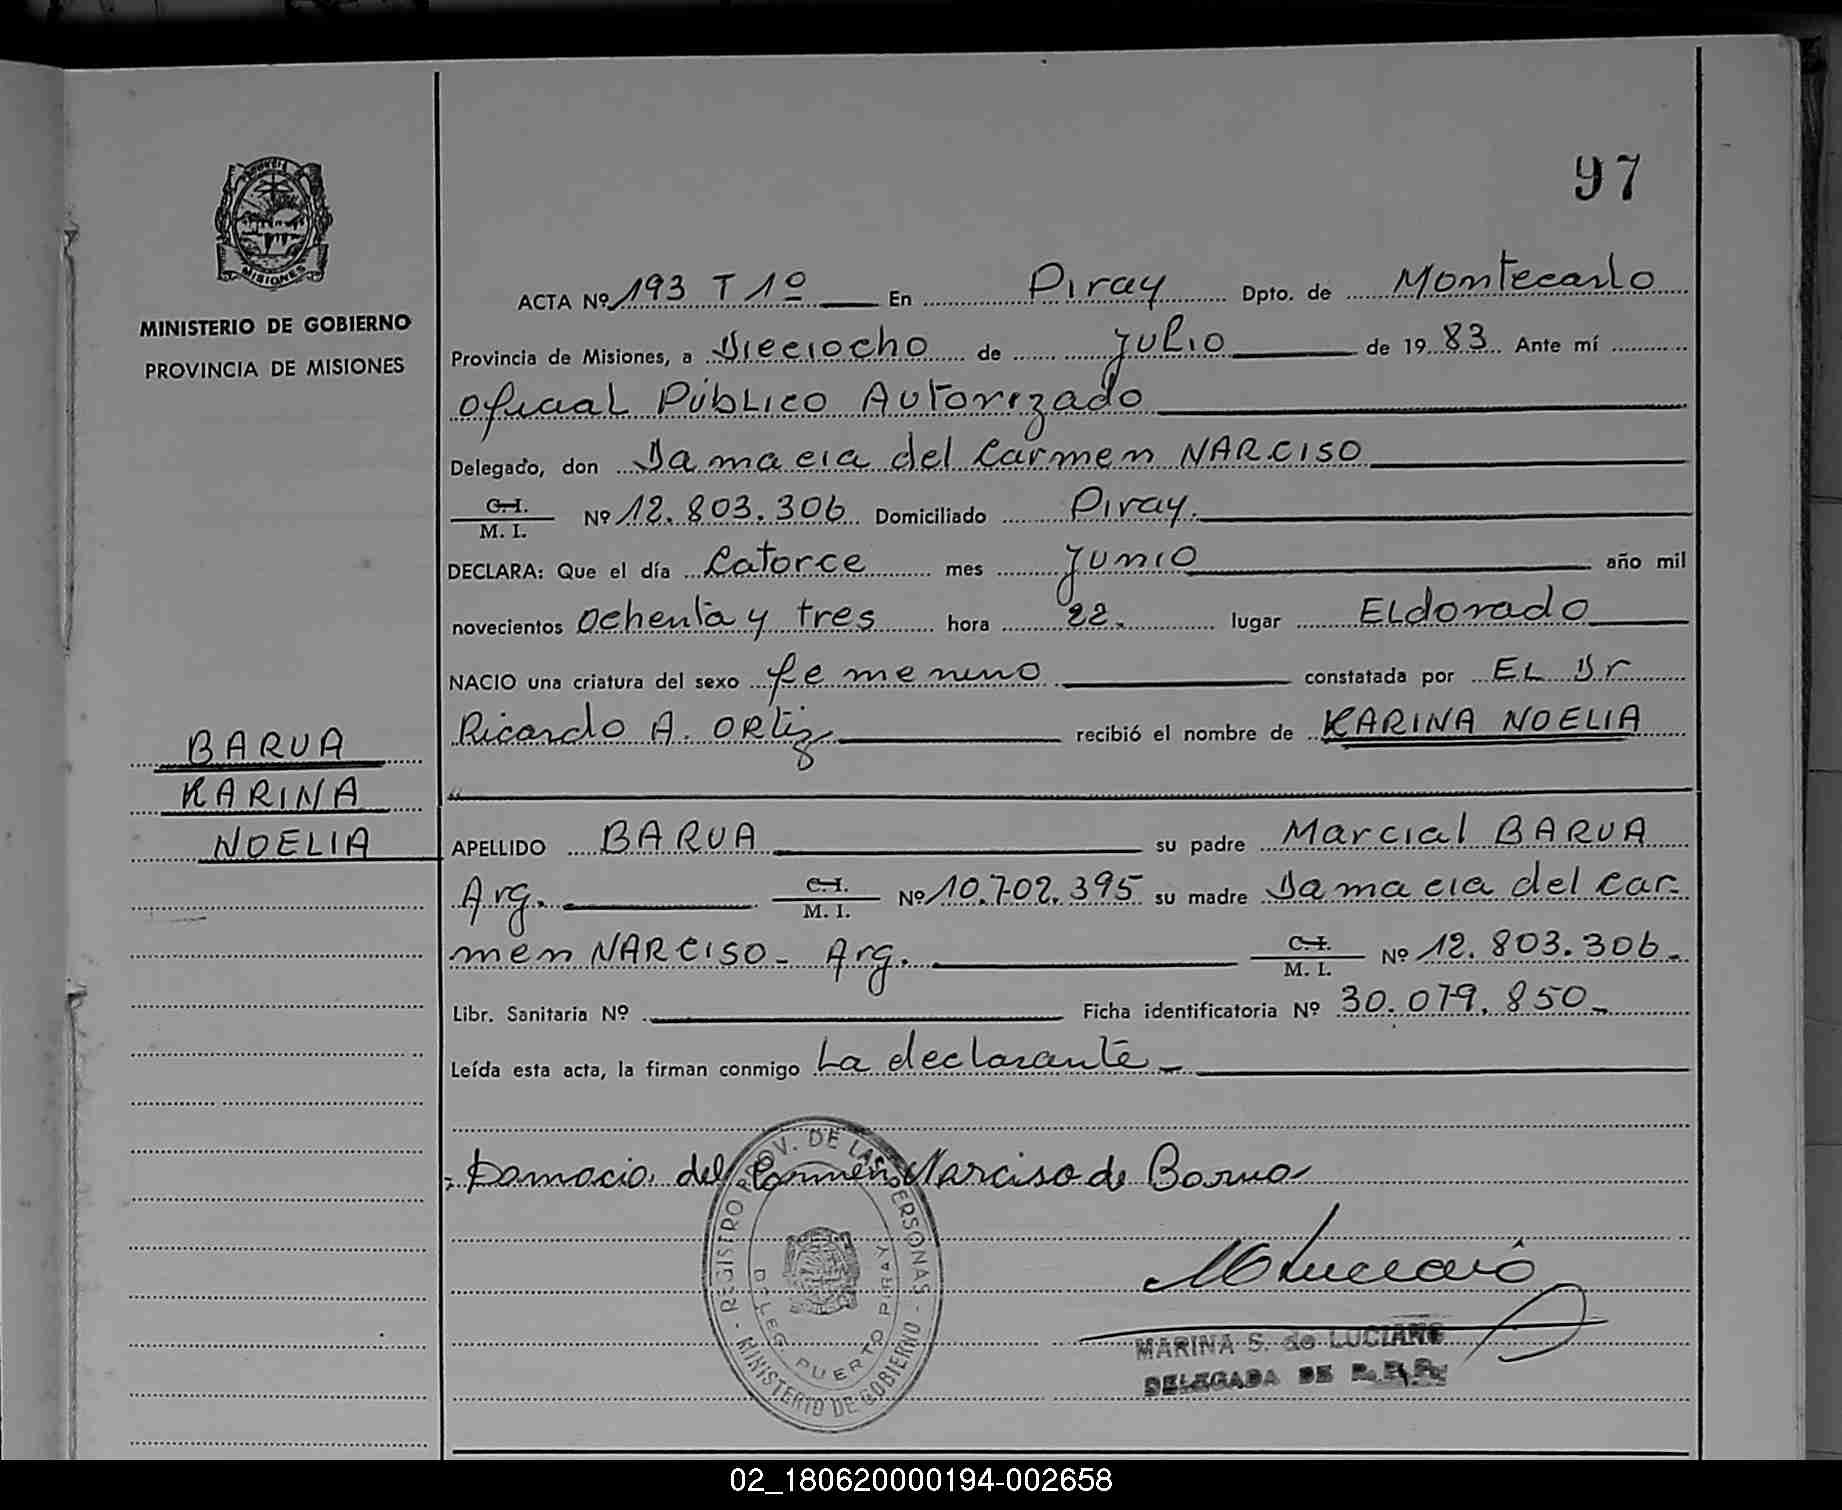 97
MISIONES
MINISTERIO DE GOBIERNO
PROVINCIA DE MISIONES
BARUA
KARINA
NOELIA
ACTA Nº 193 T 1º En Piray Dpto. de Montecarlo
Provincia de Misiones, a Dieciocho de Julio de 1983 Ante mí
Oficial Público Autorizado
Delegado, don Damacia del Carmen NARCISO
C. I. / M. I. Nº 12.803.306 Domiciliado Piray.
DECLARA: Que el día Catorce mes Junio año mil
novecientos Ochenta y tres hora 22. lugar ELdorado
NACIO una criatura del sexo femenino constatada por EL Dr
Ricardo A. ORtiz recibió el nombre de KARINA NOELIA
APELLIDO BARUA su padre Marcial BARUA
Arg. C. I. / M. I. Nº 10.702.395 su madre Damacia del Car-
men NARCISO - Arg. C. I. / M. I. Nº 12.803.306.-
Libr. Sanitaria Nº Ficha identificatoria Nº 30.079.850-
Leída esta acta, la firman conmigo La declarante -
Damacia del Carmen Narciso de Barua
REGISTRO PROV. DE LAS PERSONAS - MINISTERIO DE GOBIERNO -
DELEG. PUERTO PIRAY
MARINA S. de LUCIANO
DELEGADA DE R. P. P.
02_180620000194-002658